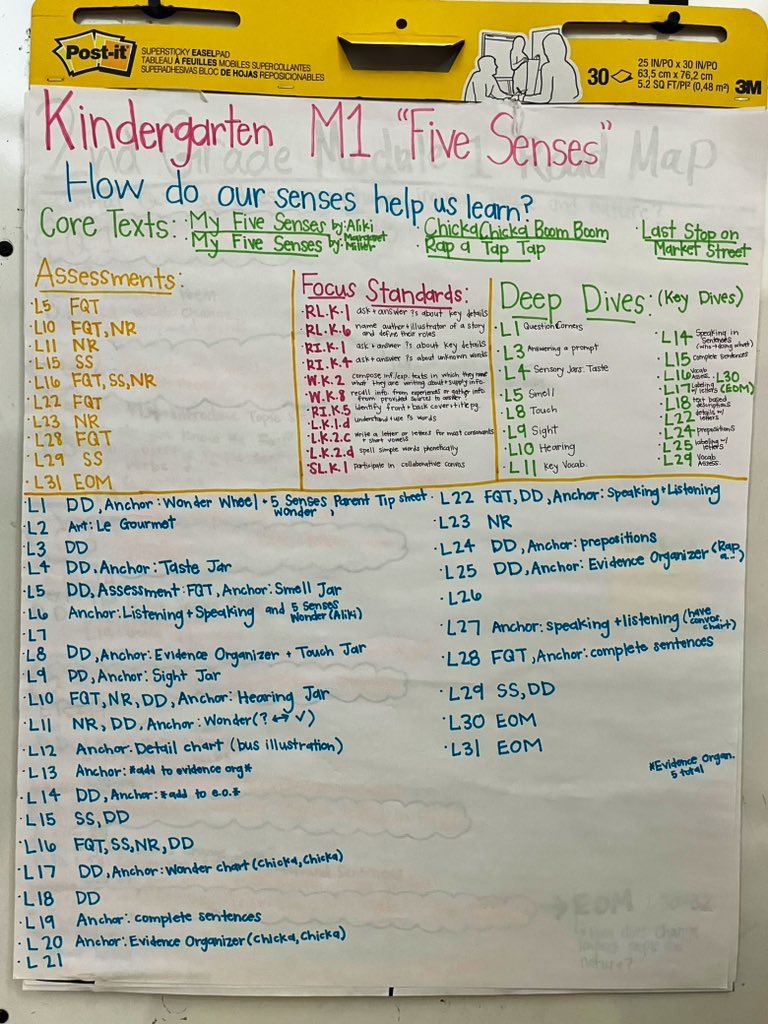 Post-it
SUPERSTICKY EASELPAD
TABLEAU À FEUILLES MOBILES SUPERCOLLANTES
SUPERADHESIVAS BLOC DE HOJAS REPOSICIONABLES
30
25 IN/PO x 30 IN/PO
63,5 cm x 76,2 cm
5.2 SQ FT/PI² (0,48 m²)
3M
Kindergarten M1 "Five Senses"
How do our senses help us learn?
Core Texts: · My Five Senses by: Aliki
My Five Senses by: Margaret Miller
· Chicka Chicka Boom Boom
Rap a Tap Tap
· Last Stop on
Market Street
Assessments:
· L5 FQT
· L10 FQT, NR
· L11 NR
· L15 SS
· L16 FQT, SS, NR
· L22 FQT
· L23 NR
· L28 FQT
· L29 SS
· L31 EOM
Focus Standards:
· RL.K.1 ask + answer ?s about key details
· RL.K.6 name author + illustrator of a story
and define their roles
· RI.K.1 ask + answer ?s about key details
· RI.K.4 ask + answer ?s about unknown words
· W.K.2 compose inf./exp. texts in which they name
what they are writing about + supply info.
· W.K.8 recall info from experiences or gather info
from provided sources to answer ?
· RI.K.5 identify front + back cover + title pg.
· L.K.1.d understand + use ?s words
· L.K.2.c write a letter or letters for most consonants
+ short vowels
· L.K.2.d spell simple words phonetically
· SL.K.1 participate in collaborative convos
Deep Dives: (Key Dives)
· L1 Question Corners
· L3 Answering a prompt
· L4 Sensory Jars: Taste
· L5 Smell
· L8 Touch
· L9 Sight
· L10 Hearing
· L11 Key Vocab.
· L14 Speaking in
Sentences
(who → doing what)
· L15 complete sentences
· L16 Vocab Assess. · L30
· L17 Labeling w/ letters (EOM)
· L18 text based
descriptions
· L22 details w/
letters
· L24 prepositions
· L25 labeling w/
letters
· L29 Vocab
Assess.
· L1 DD, Anchor: Wonder Wheel + 5 Senses Wonder, Parent Tip sheet
· L2 Art: Le Gourmet
· L3 DD
· L4 DD, Anchor: Taste Jar
· L5 DD, Assessment: FQT, Anchor: Smell Jar
· L6 Anchor: Listening + Speaking and 5 Senses
Wonder (Aliki)
· L7
· L8 DD, Anchor: Evidence Organizer + Touch Jar
· L9 DD, Anchor: Sight Jar
· L10 FQT, NR, DD, Anchor: Hearing Jar
· L11 NR, DD, Anchor: Wonder (? ↔ ✓)
· L12 Anchor: Detail chart (bus illustration)
· L13 Anchor: *add to evidence org*
· L14 DD, Anchor: *add to e.o.*
· L15 SS, DD
· L16 FQT, SS, NR, DD
· L17 DD, Anchor: Wonder chart (Chicka, Chicka)
· L18 DD
· L19 Anchor: complete sentences
· L20 Anchor: Evidence Organizer (Chicka, Chicka)
· L21
· L22 FQT, DD, Anchor: Speaking + Listening
· L23 NR
· L24 DD, Anchor: prepositions
· L25 DD, Anchor: Evidence Organizer (Rap a...)
· L26
· L27 Anchor: speaking + listening (have convos. chart)
· L28 FQT, Anchor: complete sentences
· L29 SS, DD
· L30 EOM
· L31 EOM
*Evidence Organ.
5 total